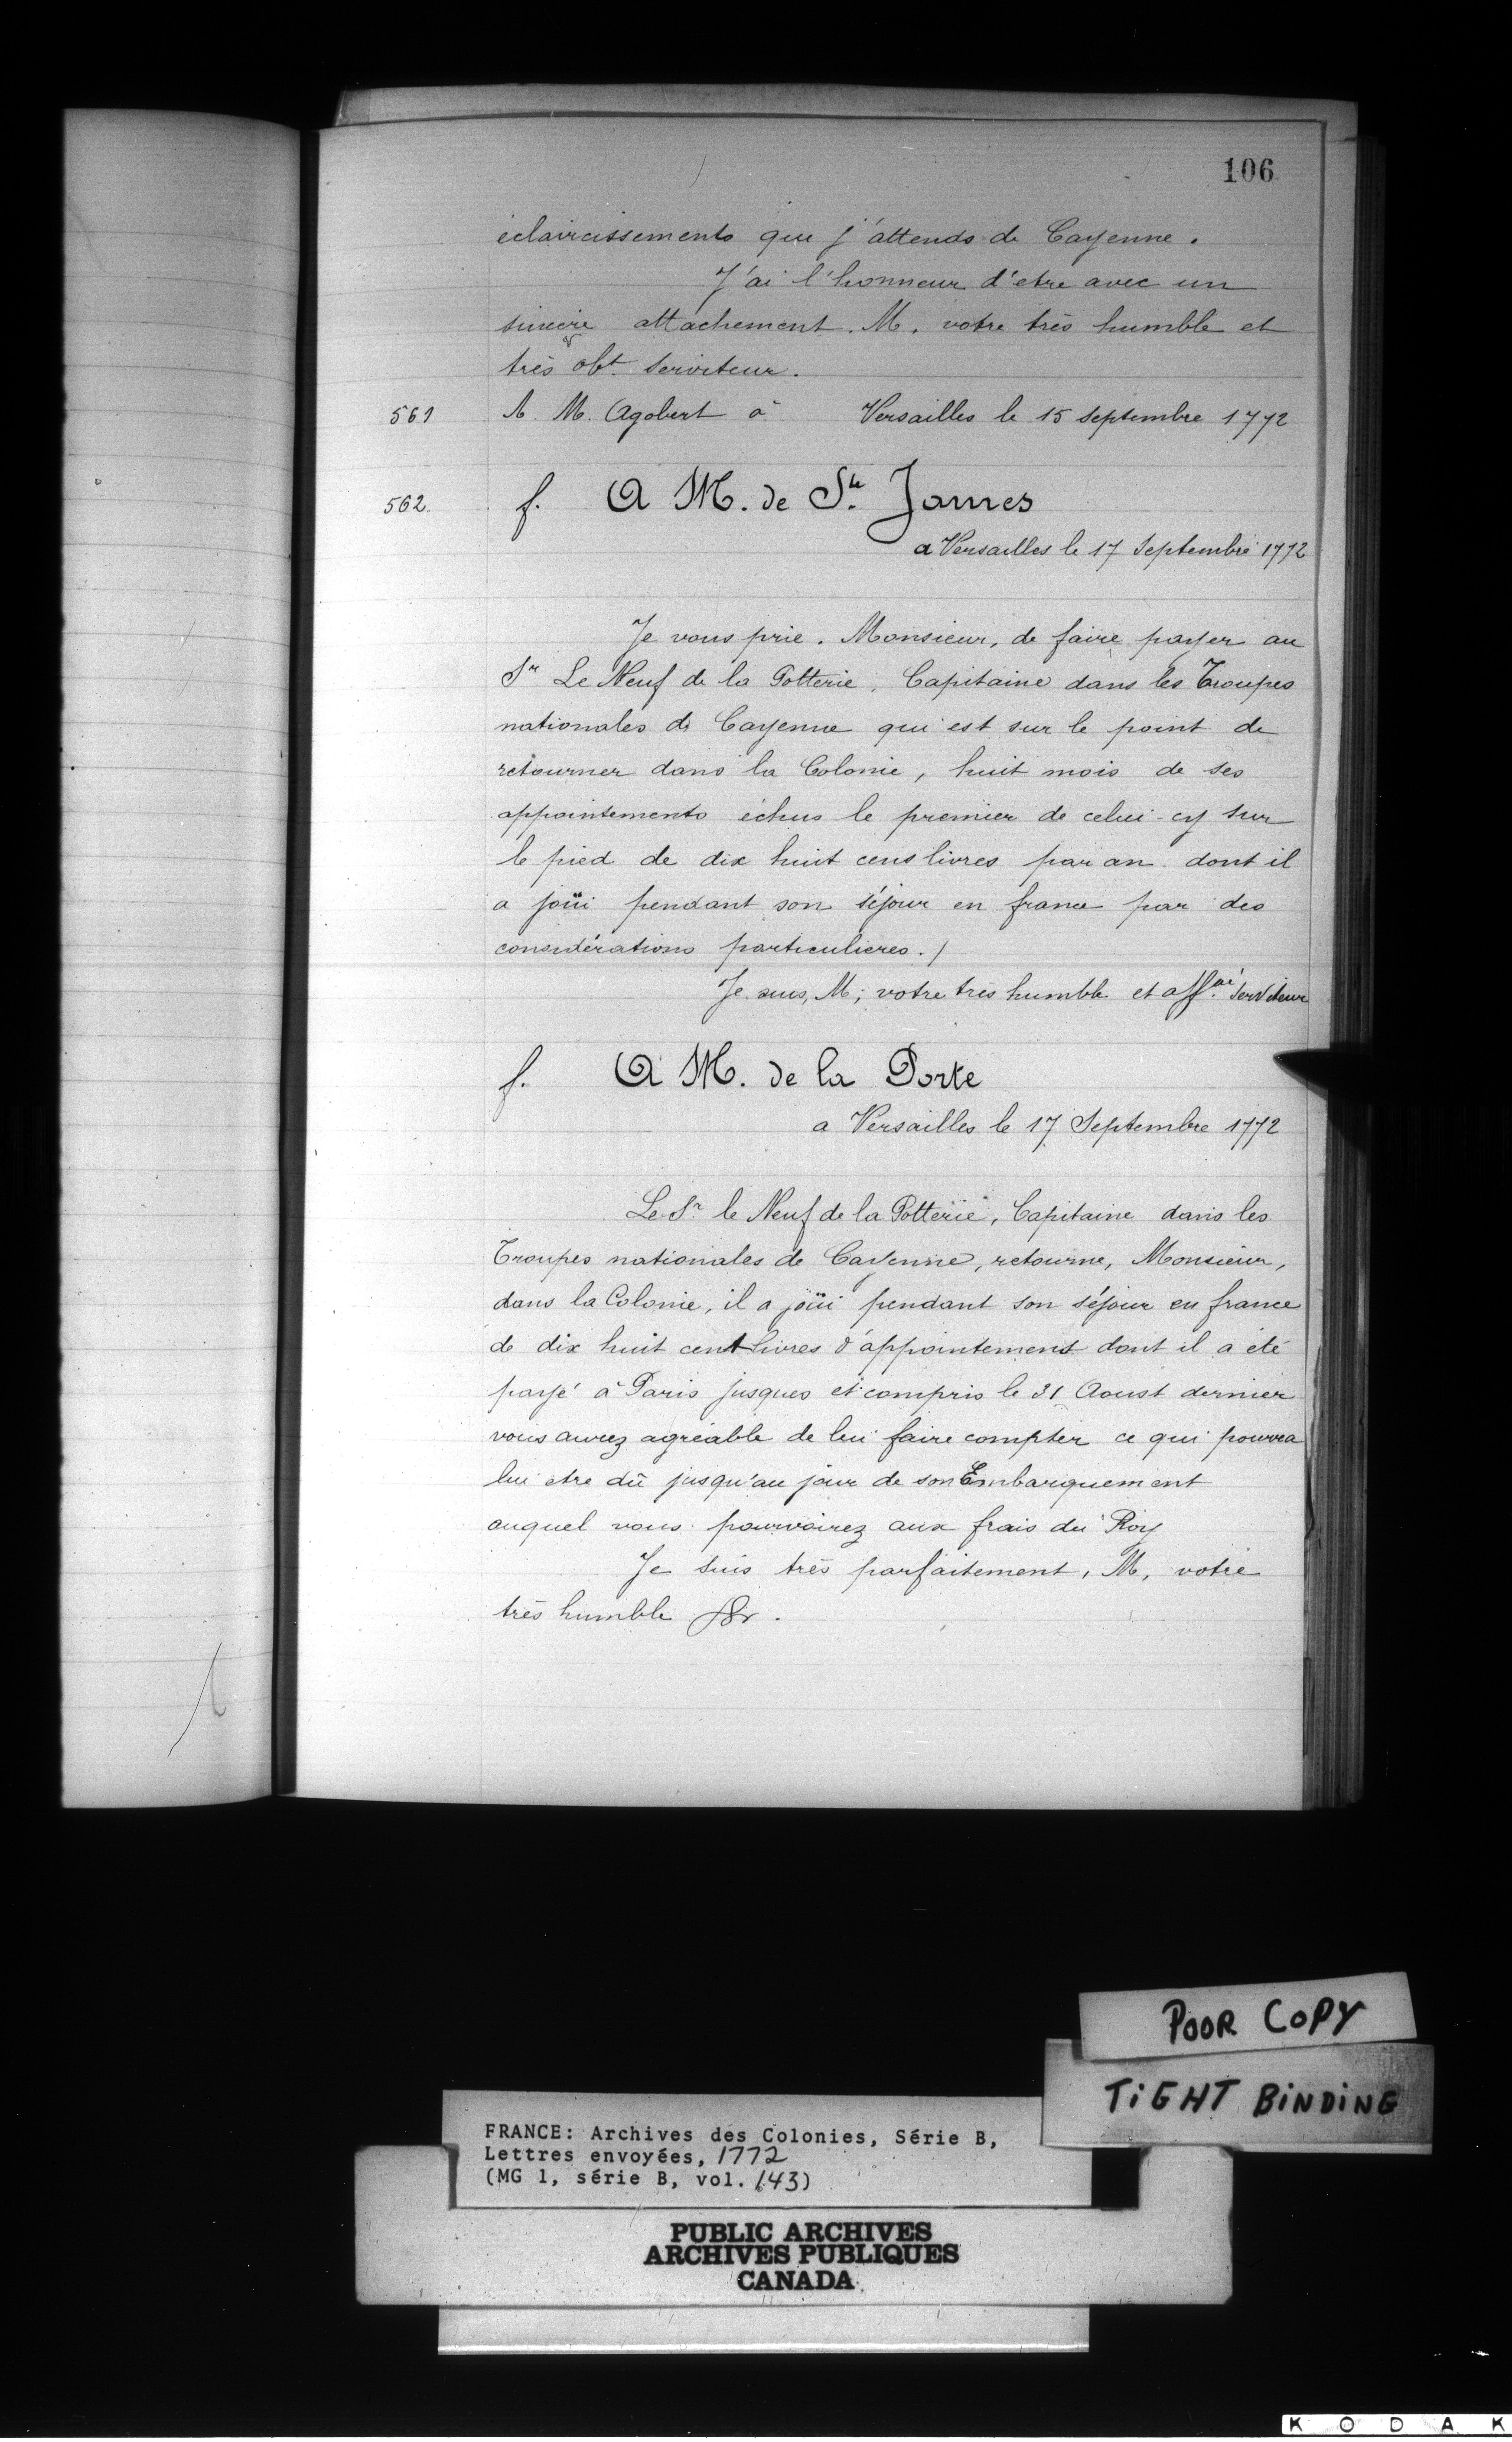 106
éclaircissements que j'attends de Cayenne.
J'ai l'honneur d'etre avec un
sincère attachement. M. votre très humble et
très obt. Serviteur.
561 A. M. Agobert à Versailles le 15 septembre 1772
562. f. A M. de Ste. James
a Versailles le 17 Septembre 1772
Je vous prie. Monsieur, de faire payer au
Sr Le Neuf de la Potterie, Capitaine dans les Troupes
nationales de Cayenne qui est sur le point de
retourner dans la Colonie, huit mois de ses
appointements échus le premier de celui-cy sur
le pied de dix huit cens livres par an dont il
a joüi pendant son séjour en france par des
considérations particulieres./
Je suis, M; votre très humble et affné. Serviteur
f. A M. de la Porte
a Versailles le 17 Septembre 1772
Le Sr. le Neuf de la Potterie, Capitaine dans les
Troupes nationales de Cayenne, retourne, Monsieur,
dans la Colonie, il a joüi pendant son séjour en france
de dix huit cent livres d'appointement dont il a été
payé à Paris jusques et compris le 31 Aoust dernier
vous aurez agréable de lui faire compter ce qui pourra
lui etre dû jusqu'au jour de son Embarquement
auquel vous pourvoirez aux frais du Roy
Je suis très parfaitement, M, votre
très humble &r.
POOR COPY
TIGHT BINDING
FRANCE: Archives des Colonies, Série B,
Lettres envoyées, 1772
(MG 1, série B, vol. 143)
PUBLIC ARCHIVES
ARCHIVES PUBLIQUES
CANADA
KODAK